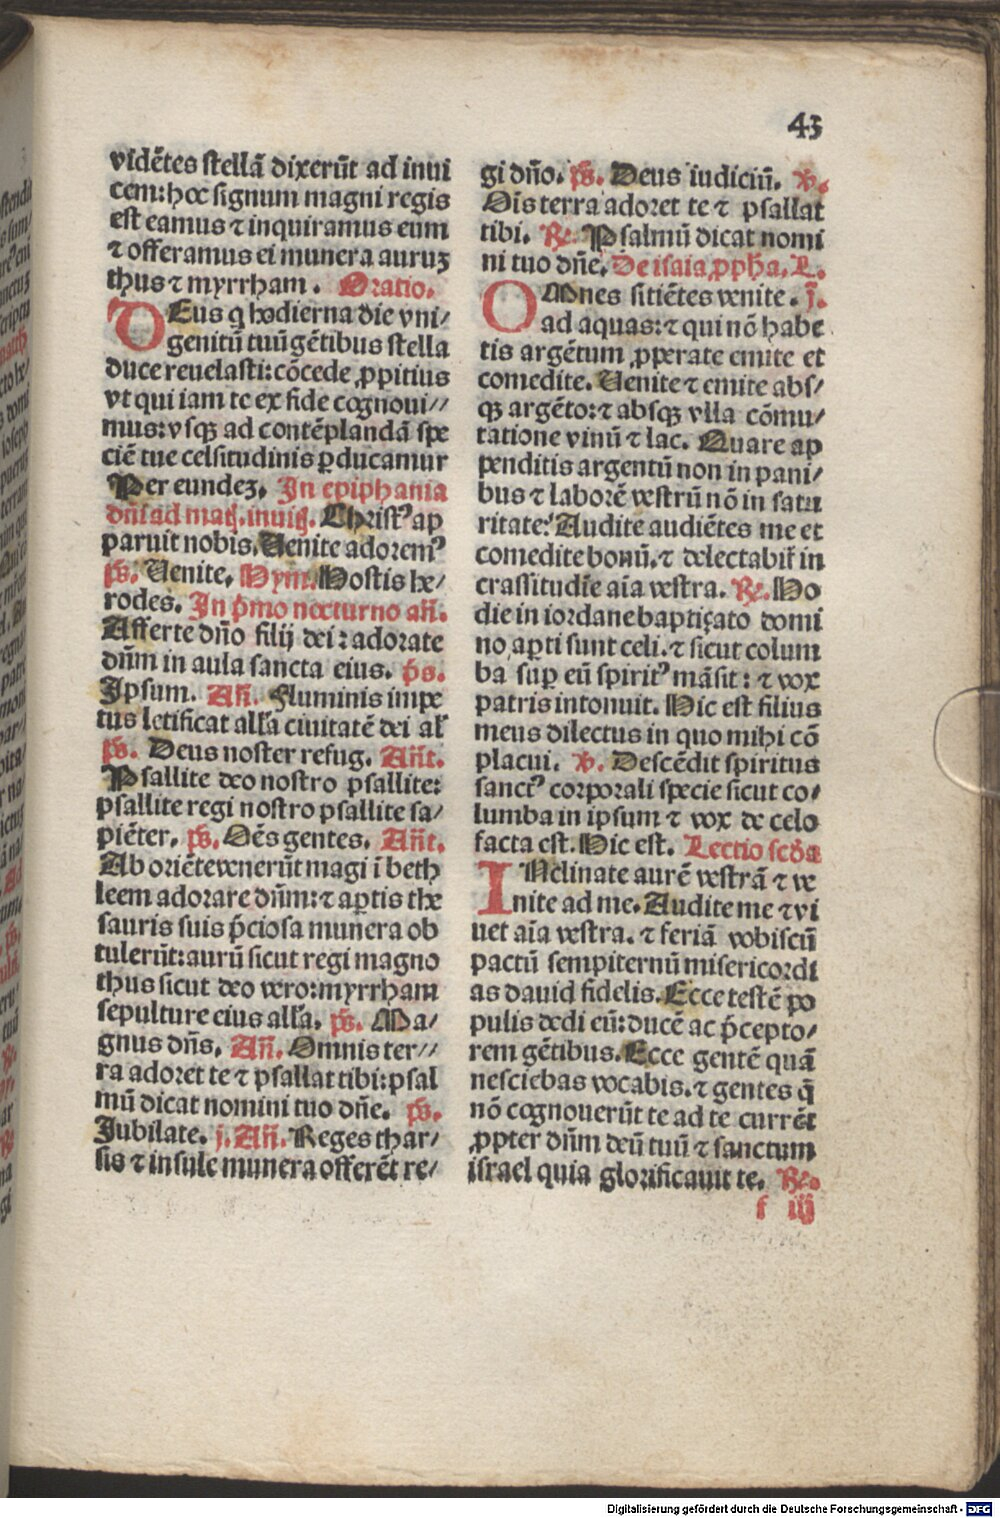 43
vidētes stellā dixerūt ad inui
cem: hoc signum magni regis
est eamus ⁊ inquiramus eum
⁊ offeramus ei munera auruꝫ
thus ⁊ myrrham. Oratio.
DEus q̇ hodierna die vni/
genitū tuū gētibus stella
duce reuelasti: cōcede ꝓpitius
vt qui iam te ex fide cognoui//
mus: vsqꝫ ad contēplandā spe
ciē tue celsitudinis ꝑducamur
Per eundeꝫ. In epiphania
dn̄i ad mat͛. inuit͛. Christꝰ ap
paruit nobis. Uenite adoremꝰ
p̄s. Uenite. Hym̄. Hostis he/
rodes. In p̄mo nocturno an̄.
Afferte dn̄o filij dei: adorate
dn̄m in aula sancta eius. p̄s.
Ipsum. An̄. Fluminis impe
tus letificat alľa ciuitatē dei aľ
p̄s. Deus noster refug. An̄t.
Psallite deo nostro psallite:
psallite regi nostro psallite sa/
piēter. p̄s. Oēs gentes. An̄t.
Ab oriēte venerūt magi ī beth
leem adorare dn̄m: ⁊ aꝑtis the
sauris suis p̄ciosa munera ob
tulerūt: aurū sicut regi magno
thus sicut deo vero: myrrham
sepulture eius alľa. p̄s. Ma/
gnus dn̄s. An̄. Omnis ter//
ra adoret te ⁊ psallat tibi: psal
mū dicat nomini tuo dn̄e. p̄s.
Jubilate. j. An̄. Reges thar/
sis ⁊ insule munera offerēt re/
gi dn̄o. p̄s. Deus iudiciū. ℣.
Oīs terra adoret te ⁊ psallat
tibi. ℟. Psalmū dicat nomi
ni tuo dn̄e. De isaia ꝓpħa. L.
OMnes sitiētes venite. j.
ad aquas: ⁊ qui nō habe
tis argētum ꝓperate emite et
comedite. Uenite ⁊ emite abs/
qꝫ argēto: ⁊ absqꝫ vlla cōmu/
tatione vinū ⁊ lac. Quare ap
penditis argentū non in pani/
bus ⁊ laborē vestrū nō in satu
ritate? Audite audiētes me et
comedite bonū. ⁊ delectabiť in
crassitudīe aīa vestra. ℟. Ho
die in iordane baptiçato domi
no aꝑti sunt celi. ⁊ sicut colum
ba suꝑ eū spiritꝰ māsit: ⁊ vox
patris intonuit. Hic est filius
meus dilectus in quo mihi cō
placui. ℣. Descēdit spiritus
sanctꝰ corporali specie sicut co/
lumba in ipsum ⁊ vox de celo
facta est. Hic est. Lectio scďa
INclinate aurē vestrā ⁊ ve
nite ad me. Audite me ⁊ vi
uet aīa vestra. ⁊ feriā vobiscū
pactū sempiternū misericordi
as dauid fidelis. Ecce testē po
pulis dedi eū: ducē ac p̄cepto/
rem gētibus. Ecce gentē quā
nesciebas vocabis. ⁊ gentes q̄
nō cognouerūt te ad te currēt
ꝓpter dn̄m deū tuū ⁊ sanctum
israel quia glorificauit te. ℟.
f iij
Digitalisierung gefördert durch die Deutsche Forschungsgemeinschaft - DFG